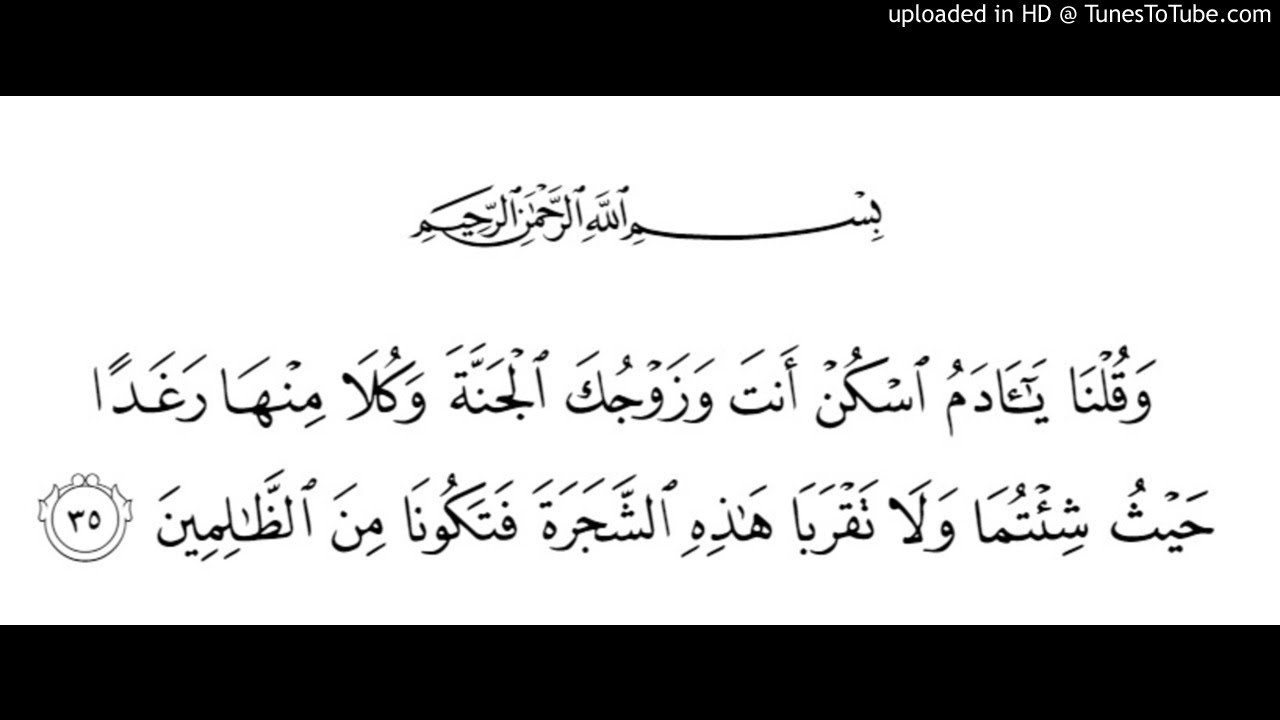 uploaded in HD @ TunesToTube.com
بِسْمِ ٱللَّهِ ٱلرَّحْمَٰنِ ٱلرَّحِيمِ
وَقُلْنَا يَٰٓـَٔادَمُ ٱسْكُنْ أَنتَ وَزَوْجُكَ ٱلْجَنَّةَ وَكُلَا مِنْهَا رَغَدًا
حَيْثُ شِئْتُمَا وَلَا تَقْرَبَا هَٰذِهِ ٱلشَّجَرَةَ فَتَكُونَا مِنَ ٱلظَّٰلِمِينَ ٣٥